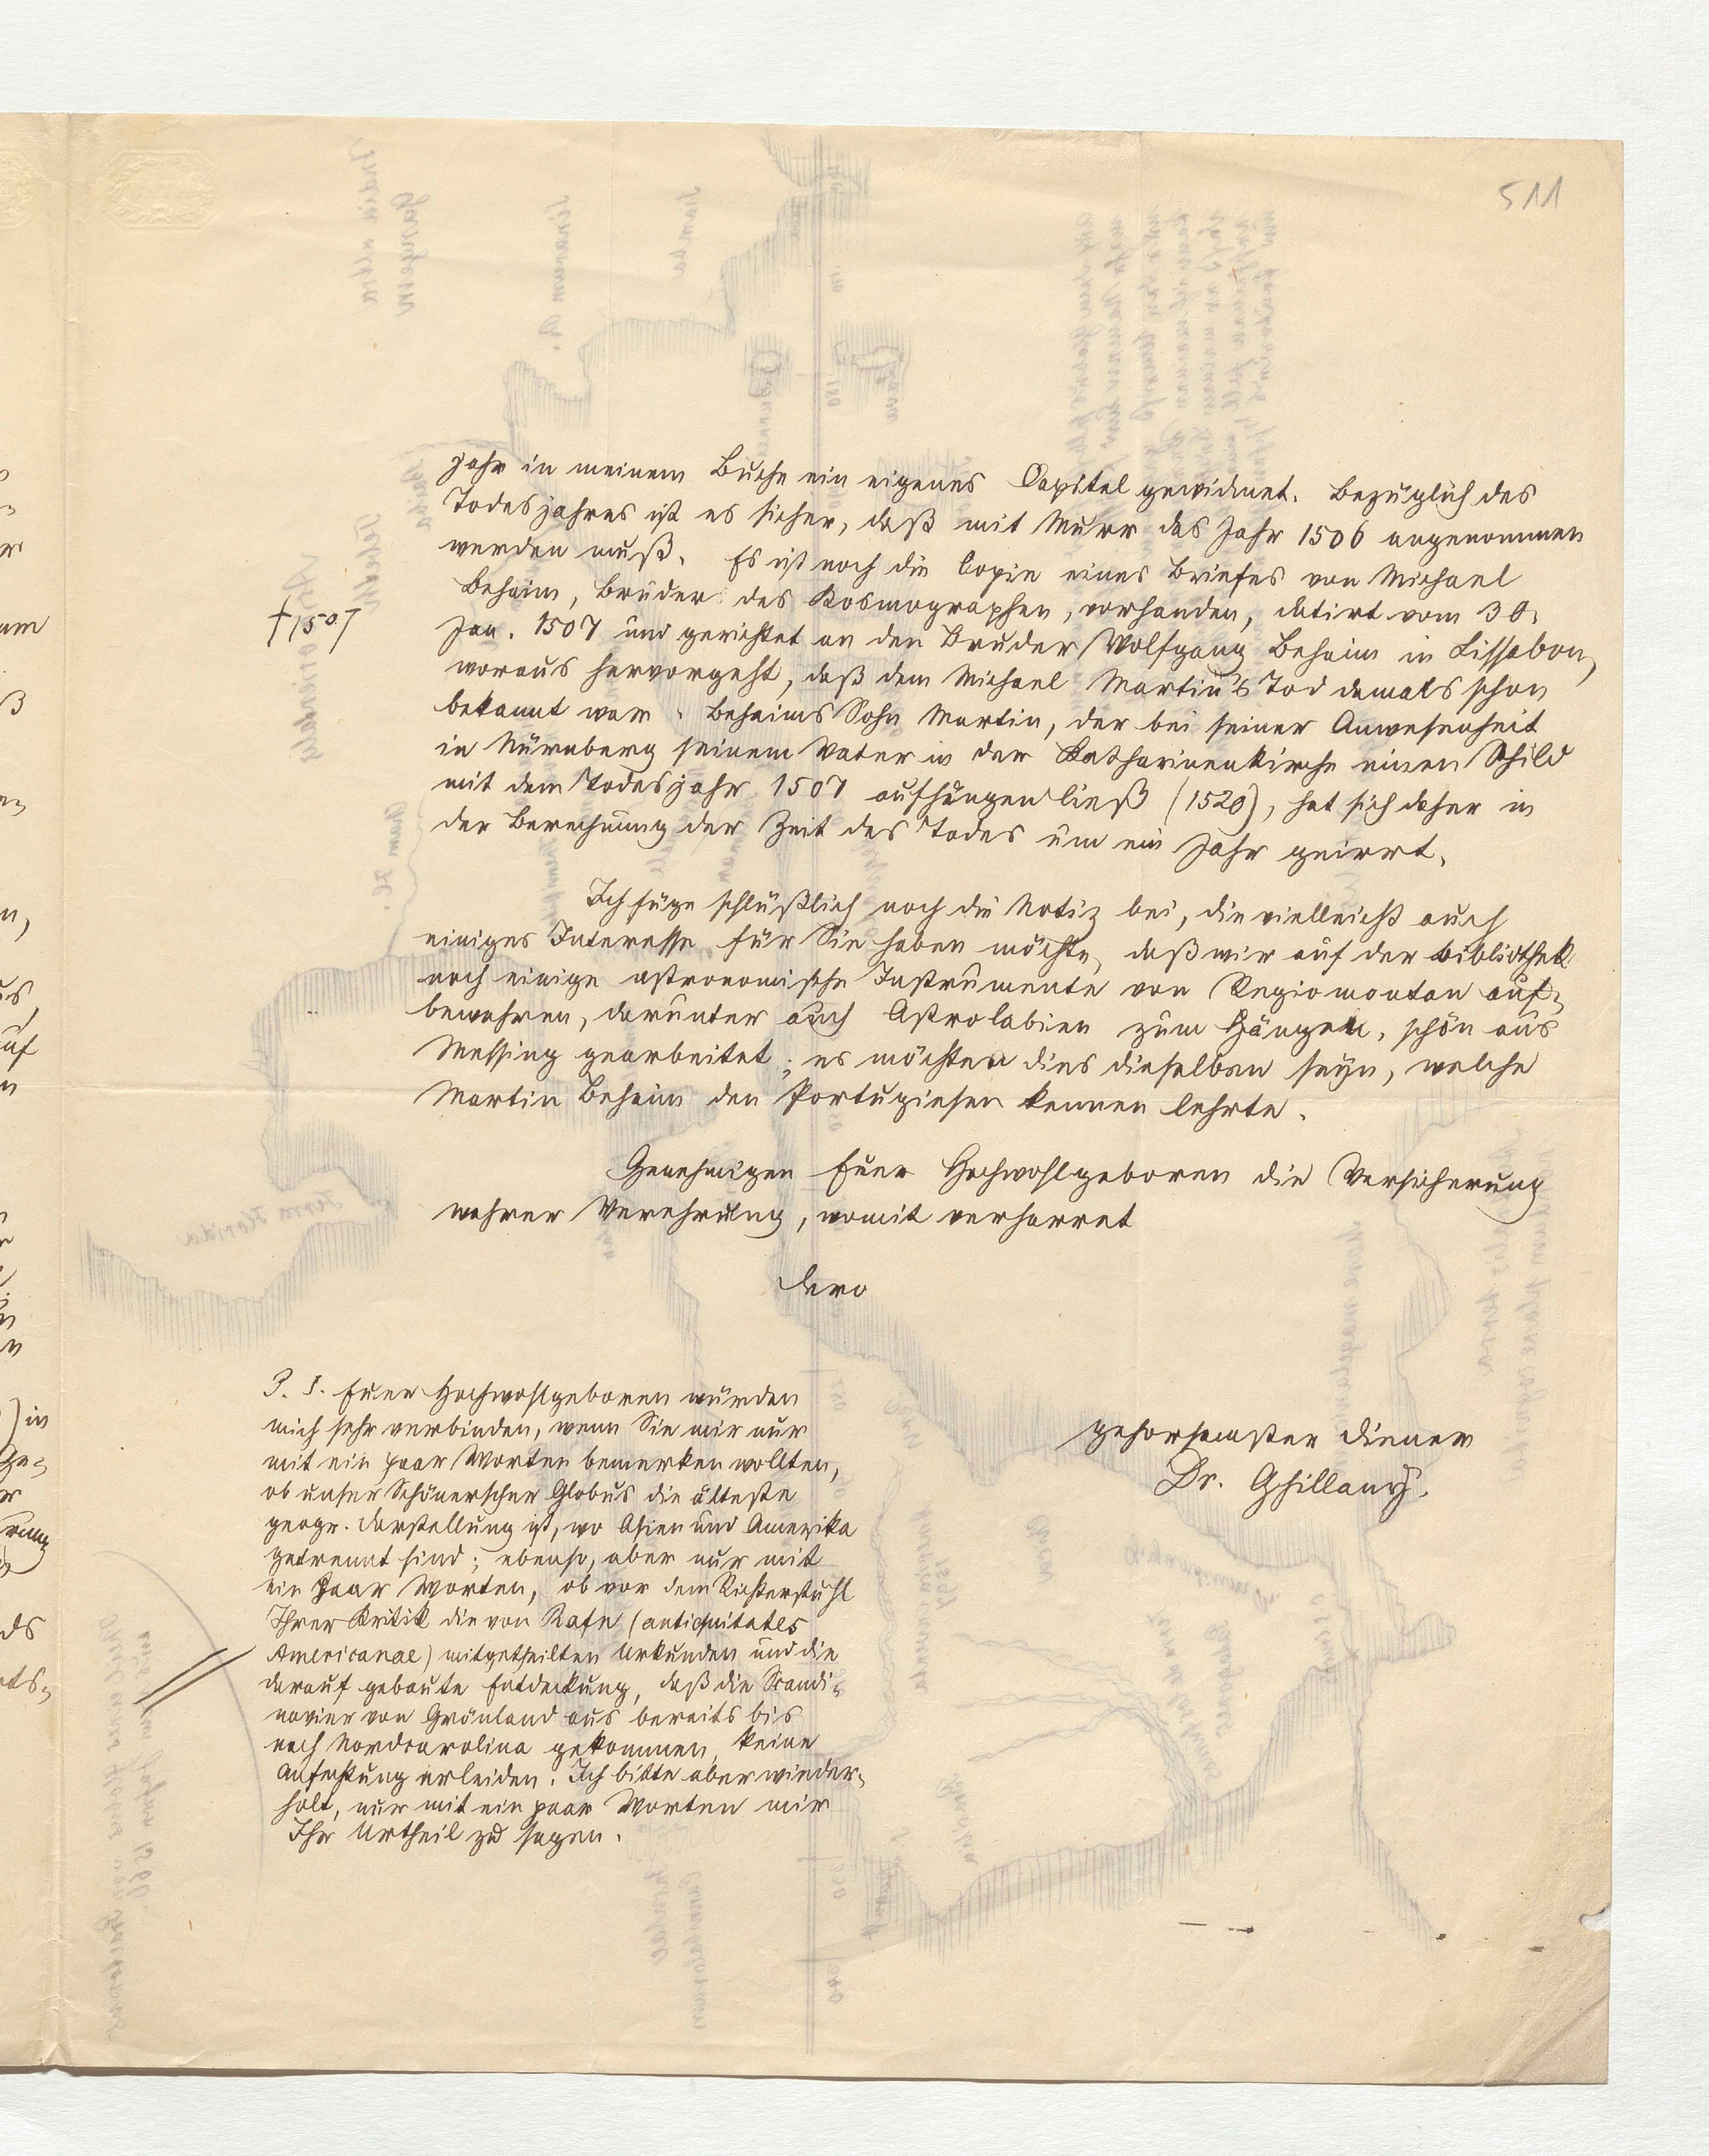 511
jahr in meinem Buche ein eigenes Capitel gewidmet. Bezüglich des
Todesjahres ist es sicher, daß mit Murr das Jahr 1506 angenommen
werden muß. Es ist noch die Copie eines Briefes von Michael
Behaim, Bruder des Kosmographen, vorhanden, datirt vom 30.
† 1507
Jan. 1507 und gerichtet an den Bruder Wolfgang Behaim in Lissabon,
woraus hervorgeht, daß dem Michael Martin's Tod damals schon
bekannt war. Behaims Sohn Martin, der bei seiner Anwesenheit
in Nürnberg seinem Vater in der Katharinenkirche einen Schild
mit dem Todesjahr 1507 aufhängen ließ (1520), hat sich daher in
der Berechnung der Zeit des Todes um ein Jahr geirrt.
Ich füge schlüßlich noch die Notiz bei, die vielleicht auch
einiges Interesse für Sie haben möchte, daß wir auf der Bibliothek
noch einige astronomische Instrumente von Regiomontan auf-
bewahren, darunter auch Astrolabien zum Hängen, schön aus
Messing gearbeitet; es möchten dies dieselben seyn, welche
Martin Behaim den Portugiesen kennen lehrte.
Genehmigen Euer Hochwohlgeboren die Versicherung
wahrer Verehrung, womit verharret
dero
gehorsamster Diener
Dr. Ghillany.
P. S. Euer Hochwohlgeboren würden
mich sehr verbinden, wenn Sie mir nur
mit ein paar Worten bemerken wollten,
ob unser Schönerscher Globus die älteste
geogr. Darstellung ist, wo Asien und Amerika
getrennt sind; ebenso, aber nur mit
ein Paar Worten, ob vor dem Richterstuhl
Ihrer Kritik die von Rafn (antiquitates
Americanae) mitgetheilten Urkunden und die
darauf gebaute Entdeckung, daß die Scandi-
navier von Grönland aus bereits bis
nach Nordcarolina gekommen, keine
Anfechtung erleiden. Ich bitte aber wieder-
holt, nur mit ein paar Worten mir
Ihr Urtheil zu sagen.